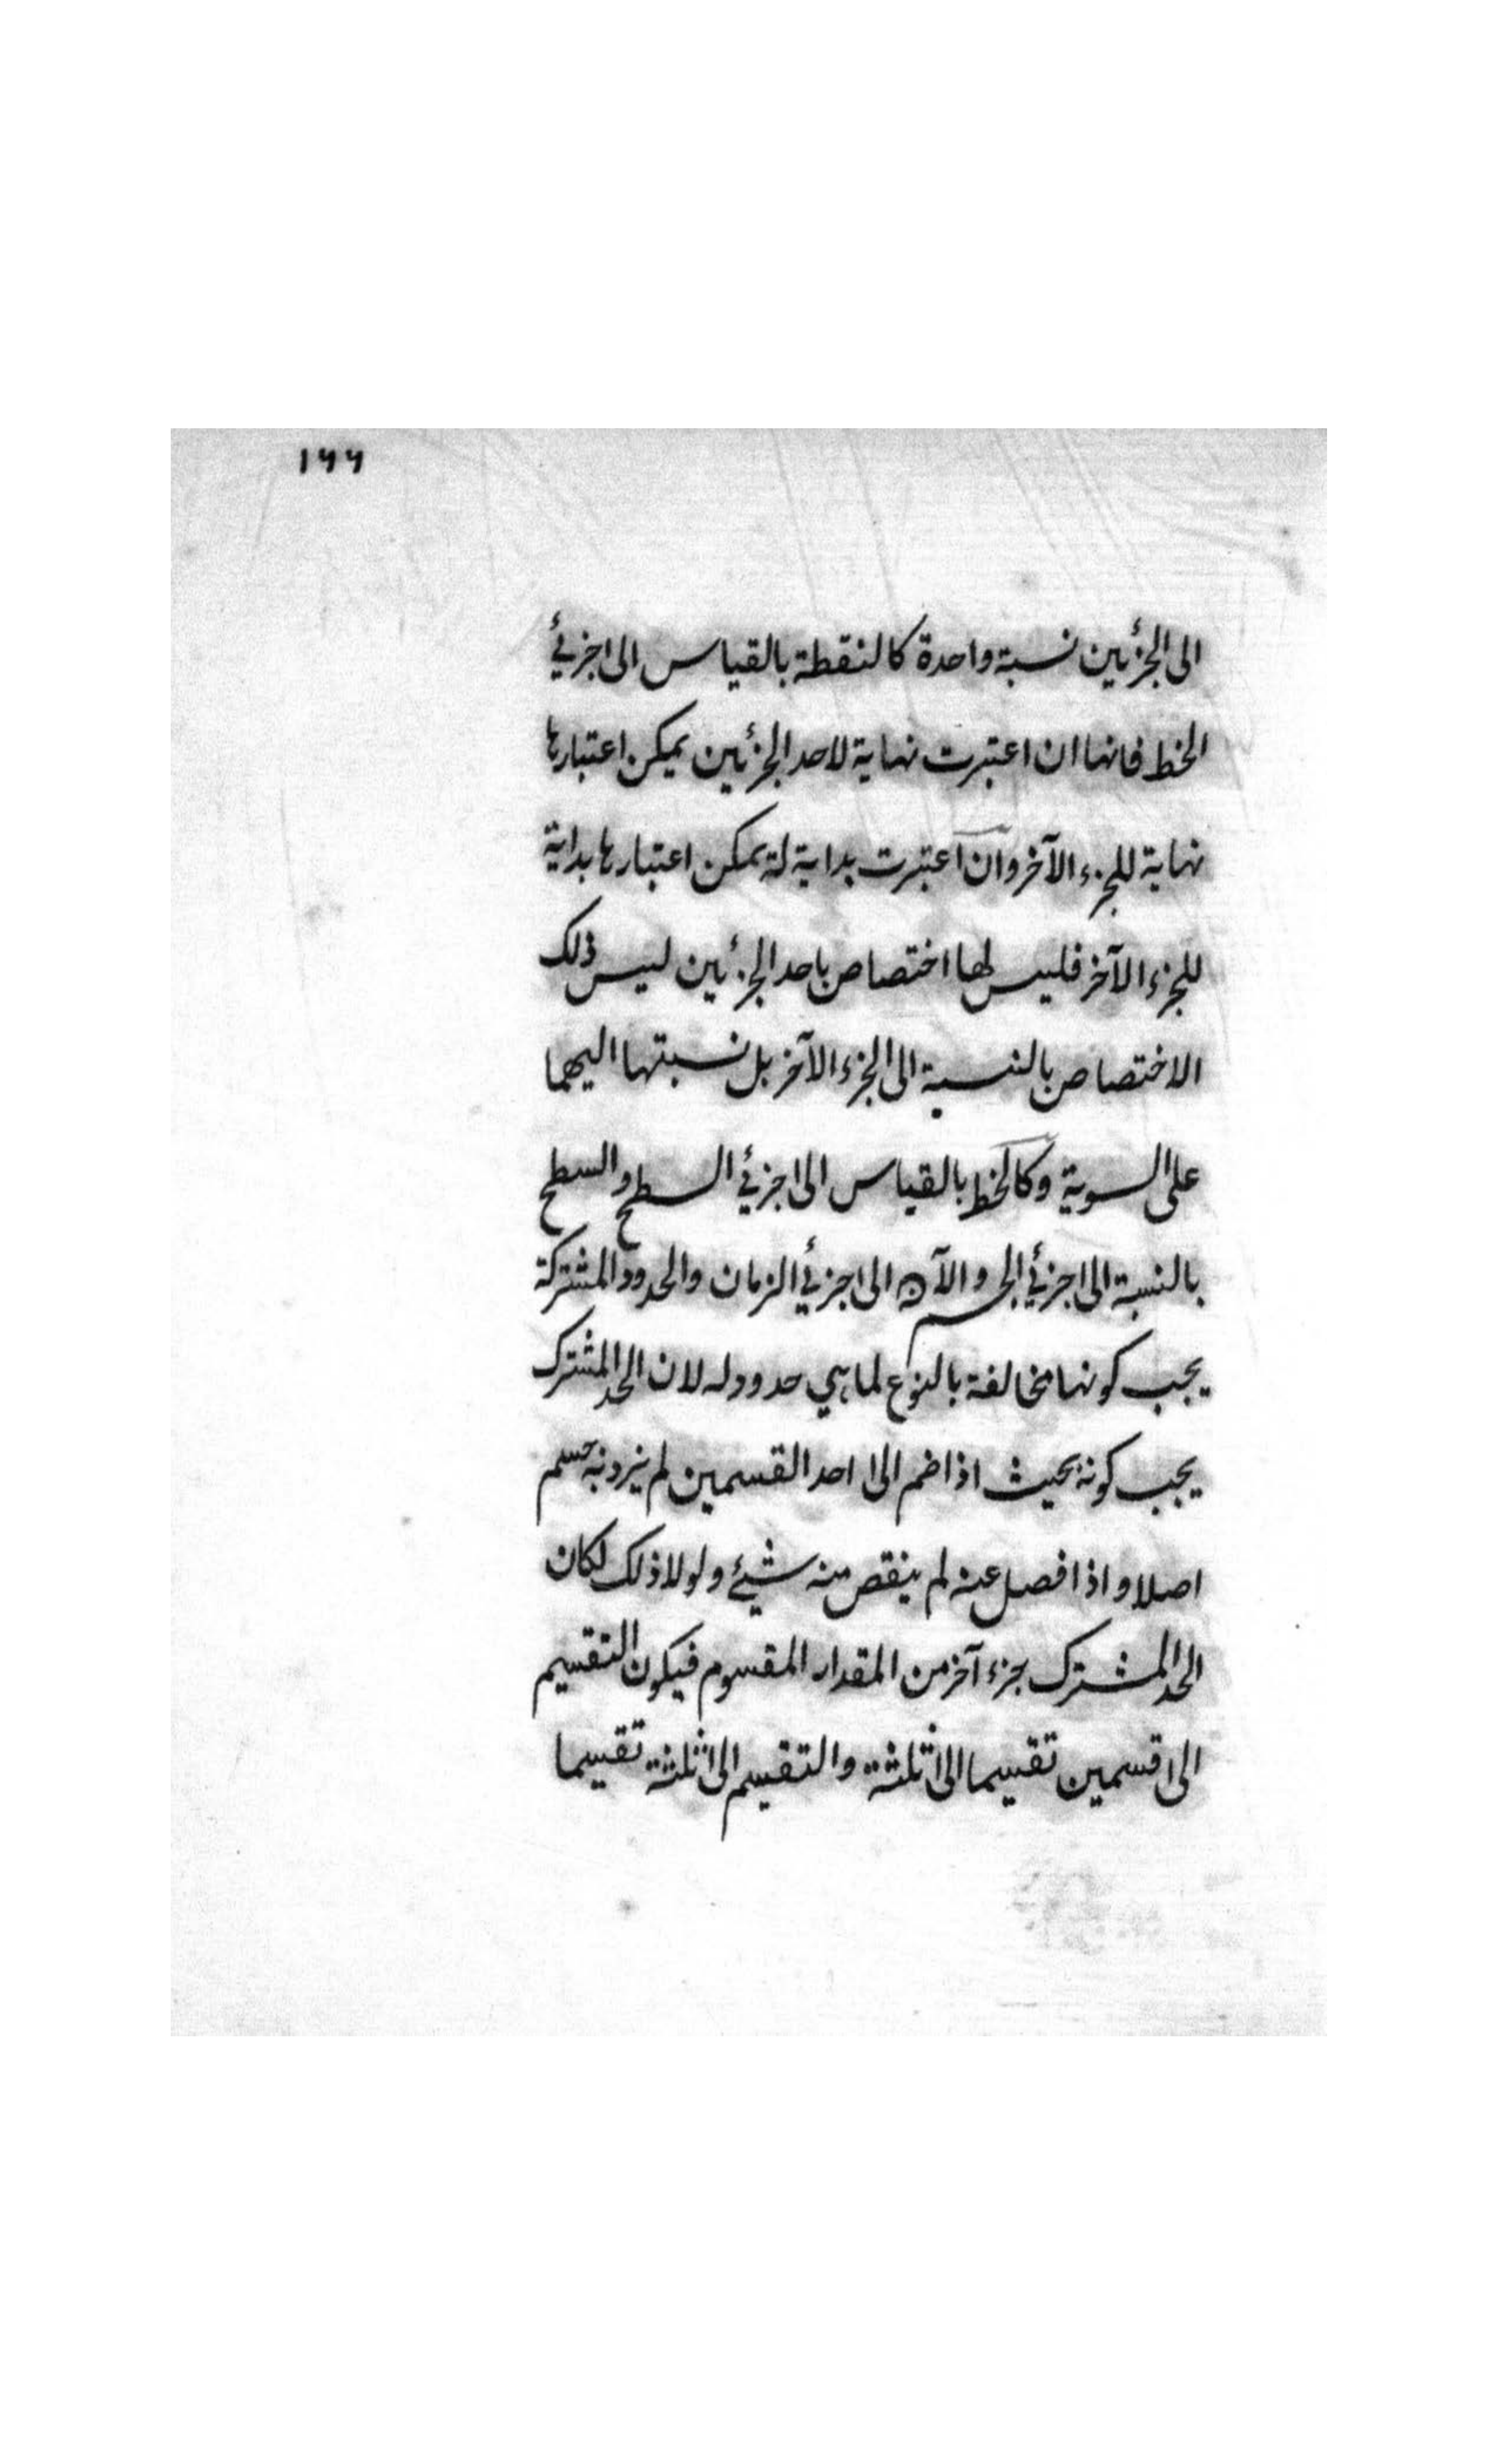 ١٦٦
الى الجزئين نسبة واحدة كالنقطة بالقياس الى جزئي
الخط فانها ان اعتبرت نهاية لاحد الجزئين يمكن اعتبارها
نهاية للجزء الآخر وان اعتبرت بداية له يمكن اعتبارها بداية
للجزء الآخر فليس لها اختصاص باحد الجزئين ليس ذلك
الاختصاص بالنسبة الى الجزء الآخر بل نسبتها اليهما
على السوية وكالخط بالقياس الى جزئي السطح والسطح
بالنسبة الى جزئي الجسم والآن الى جزئي الزمان والحدود المشتركة
يجب كونها مخالفة بالنوع لما هي حدود له لان الحد المشترك
يجب كونه بحيث اذا ضم الى احد القسمين لم يزد به جسم
اصلا و اذا فصل عنه لم ينقص منه شيئ و لولا ذلك لكان
الحد المشترك بجزء آخر من المقدار المقسوم فيكون التقسيم
الى قسمين تقسيما الى ثلثة والتقسيم الى ثلثة تقسيما